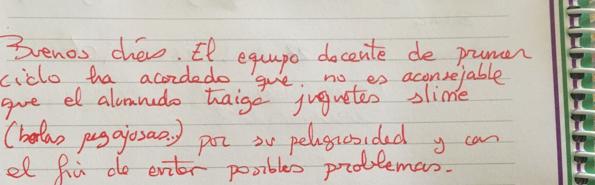 Buenos días. El equipo docente de primer
ciclo ha acordado que no es aconsejable
que el alumnado traiga juguetes slime
(bolas pegajosas..) por su peligrosidad y con
el fin de evitar posibles problemas.